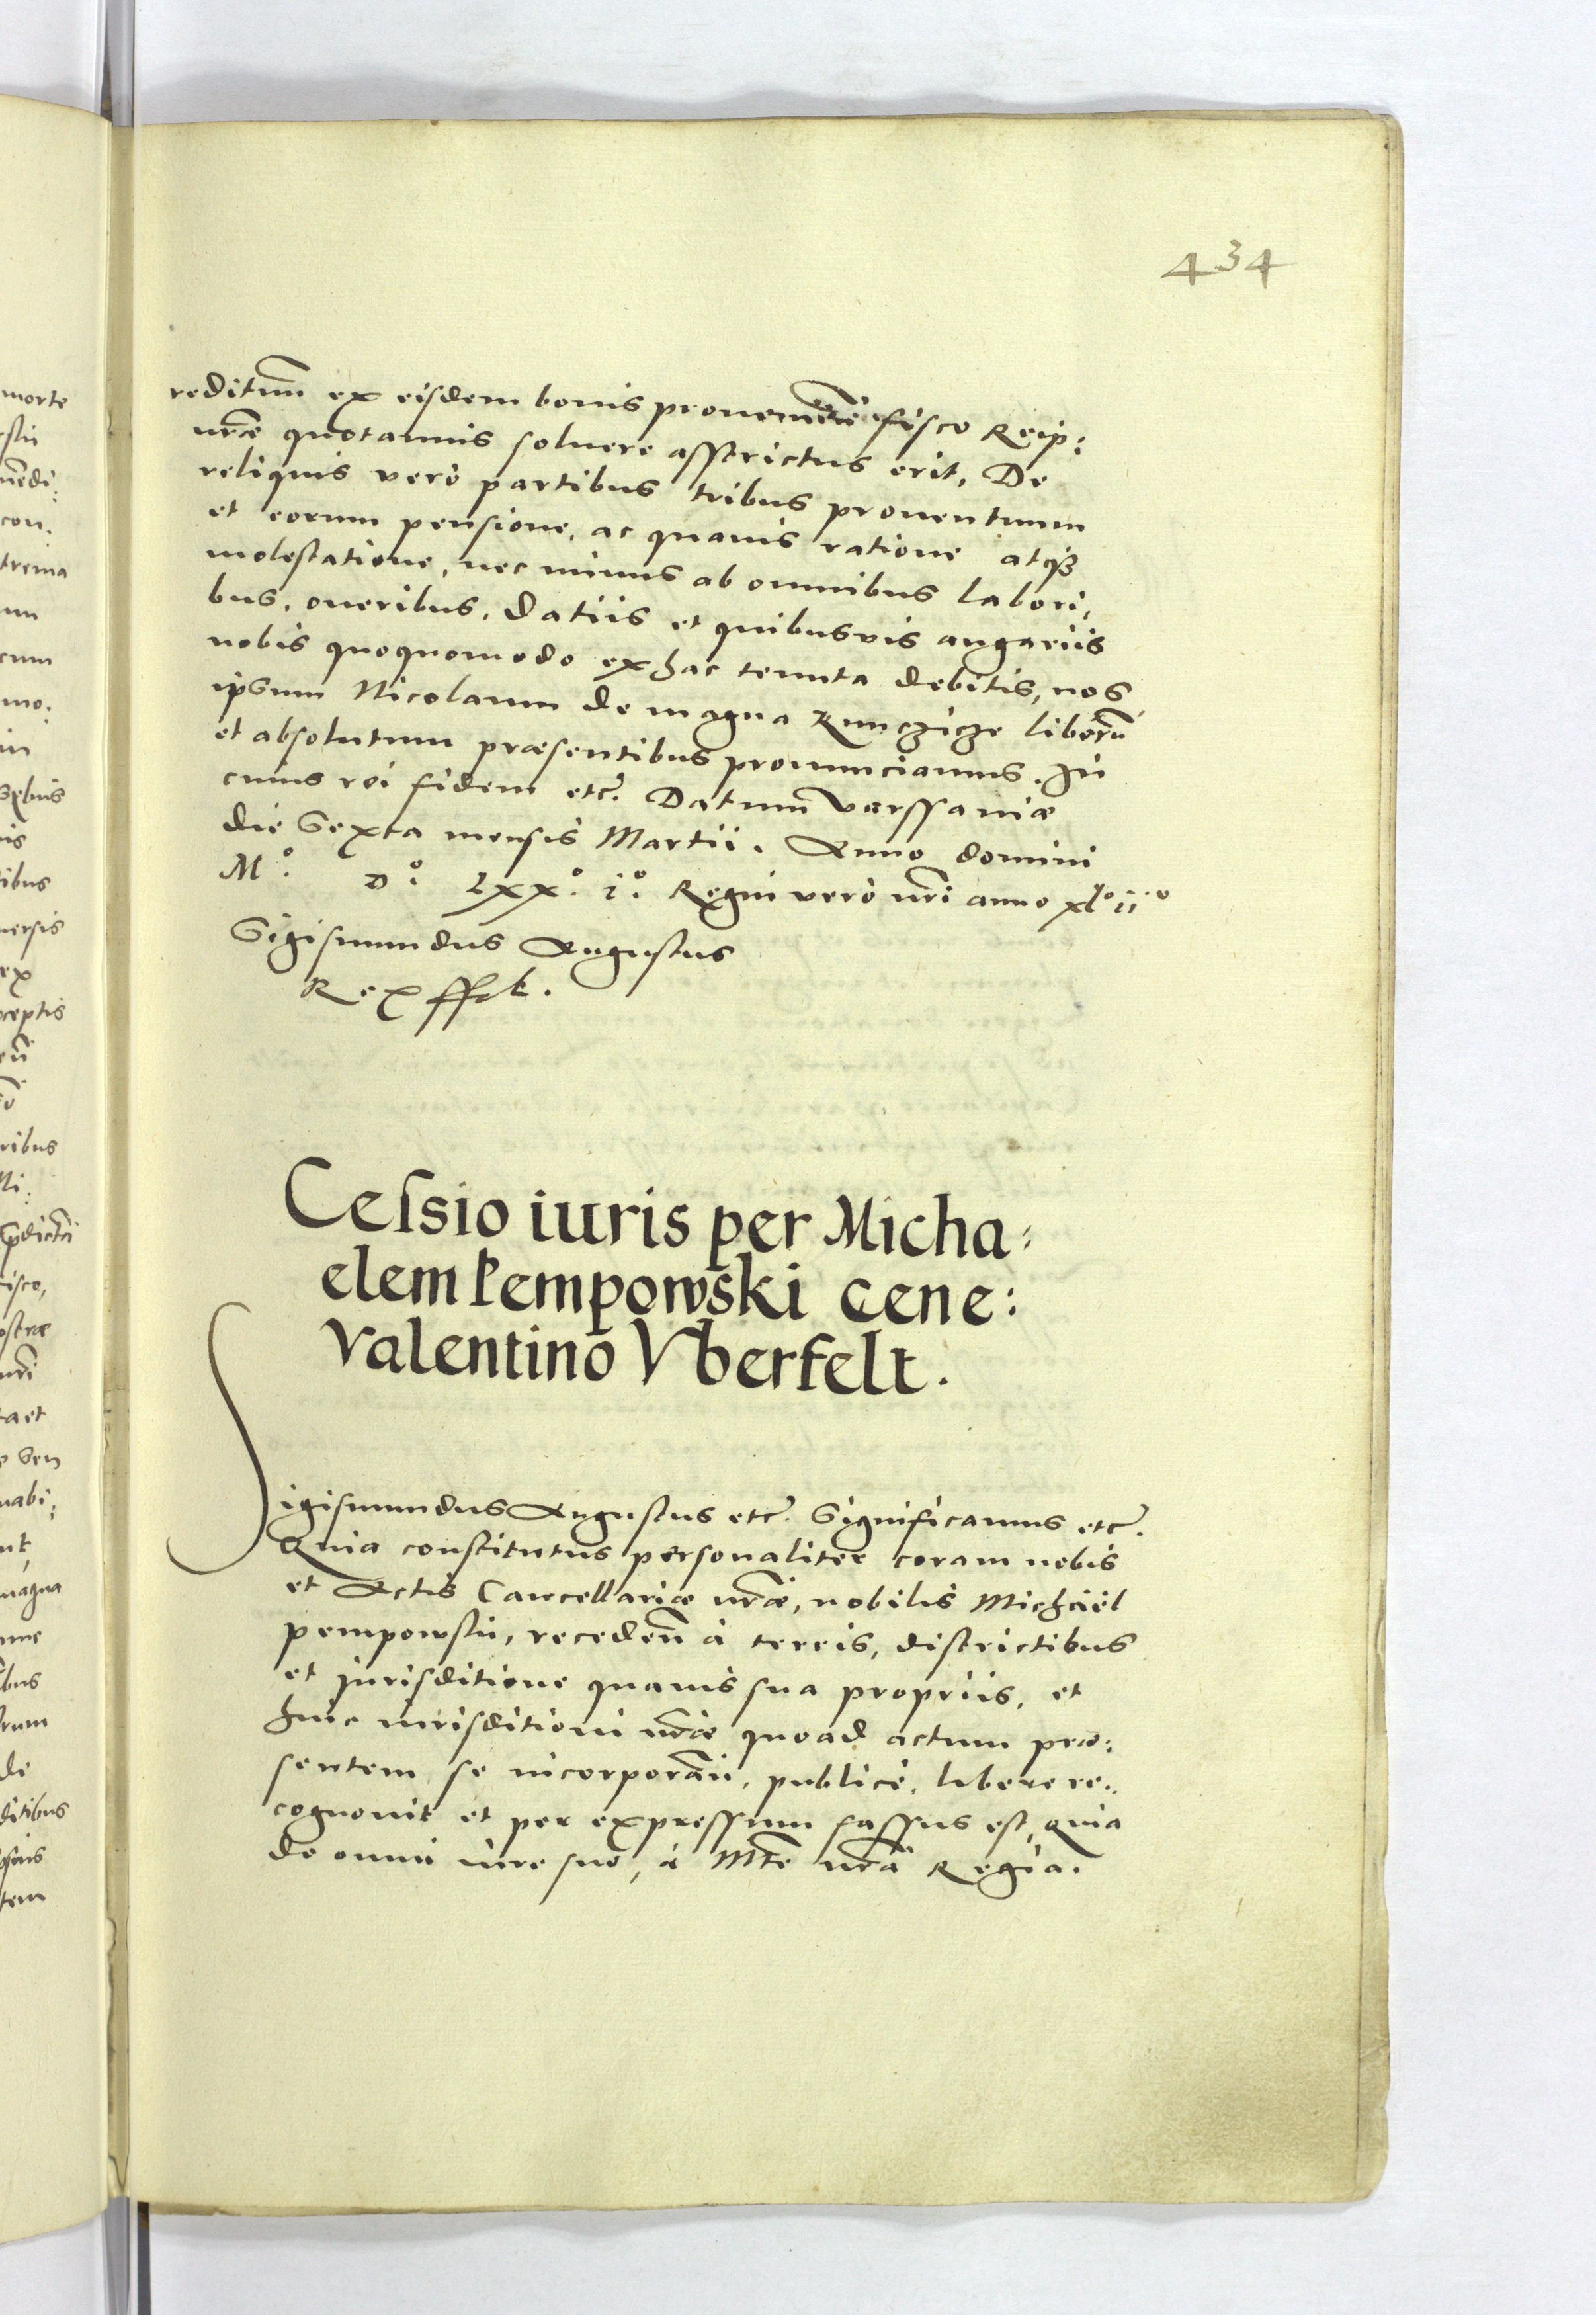 434
redituum ex eisdem bonis fisco Reip:
nrae quotannis soluere asstrictus erit, De
reliquis verò partibus tribus prouentuum
et eorum pensione, ac quauis ratione atqȝ
molestatione, nec minus ab omnibus labori,
bus, oneribus, datiis et quibusvis angariis
nobis quoquomodo ex hac tenuta debitis, nos
ipsum Nicolaum de magna liberū
et absolutum praesentibus pronunciamus. In
cuius rei fidem etc. Datum varssauiae
die sexta mensis Martii. Anno domini
Mº. Dº. Lxxº. iº. Regni verò nri anno xlº iiº
Sigismundus Augustus
Rex sst.
Cessio iuris per Micha:
elem Pempowski gene:
Valentino Vberfelt.
Sigismundus Augustus etc. Significamus etc.
Quia constitutus personaliter coram nobis
et Actis Cancellariae nrae, nobilis Michaël
pempowski, recedeñ à terris, districtibus
et jurisditione quauis sua propriis, et
huic iurisditioni nrae quoad actum prae:
sentem se incorporañ, publicè, libere re:
cognouit et per expressum fassus est, quia
de omni iure suo, à Mte nrā Regia.
morte
con.
cum
mo:
in
is
ibus
uersis
ex
ceptis
ribus
isco,
ostrae
nri
ta et
nabi:
magna
bus
rum
de
ditibus
tem